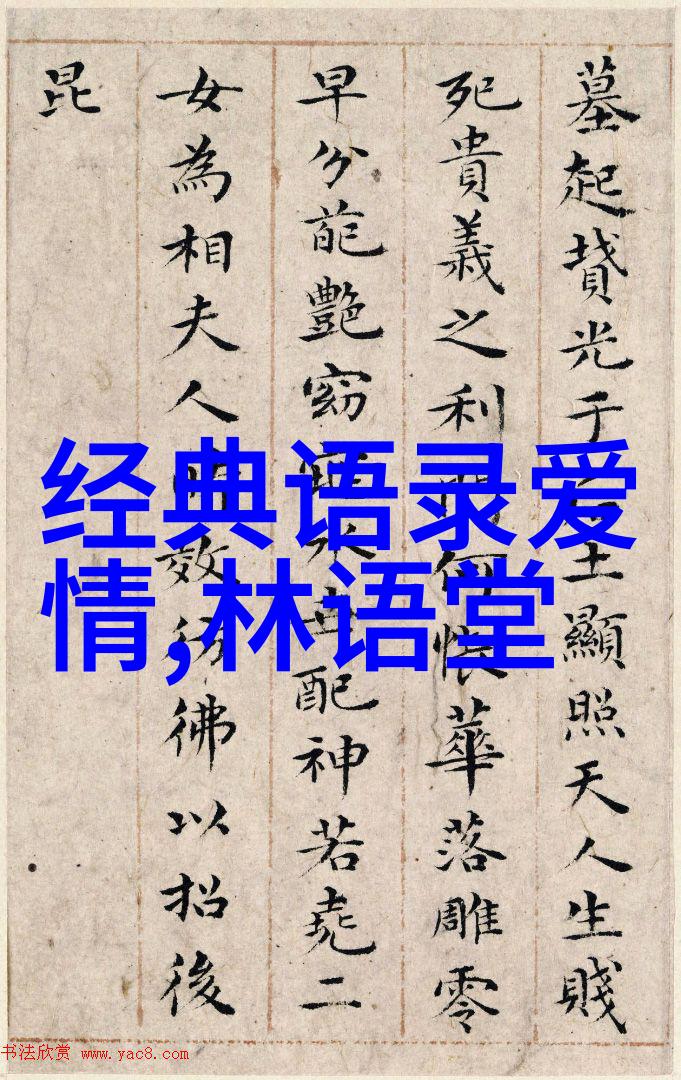 墓起墳光于土顯照天人生賤
死貴義之利何悵華落雕零
早分葩艷窈永世配神若堯二
女為相夫人效彷彿以招後
昆
经典语录爱
情,林语堂
书法欣赏 www.yac8.com